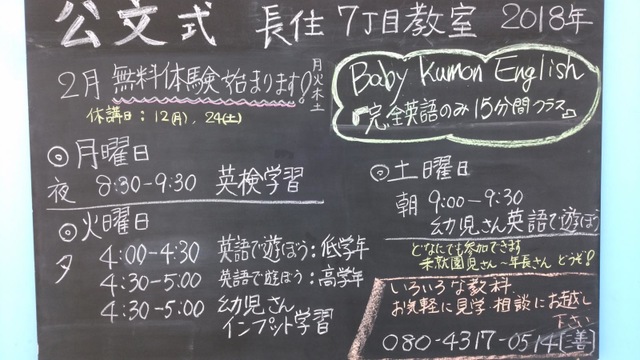 公文式 長住 7丁目教室 2018年
2月 無料体験始まります! 月火木土
休講日: 12(月), 24(土)
Baby Kumon English
『完全英語のみ 15分間クラス』
◎月曜日
夜 8:30-9:30 英検学習
◎火曜日
夕 4:00-4:30 英語で遊ぼう:低学年
4:30-5:00 英語で遊ぼう:高学年
4:30-5:00 幼児さん
インプット学習
◎土曜日
朝 9:00-9:30
幼児さん英語で遊ぼう
どなたにでも参加できます
未就園児さん~年長さん どうぞ!
いろいろな教科
お気軽に見学 相談にお越し
下さい
080-4317-0514[善]